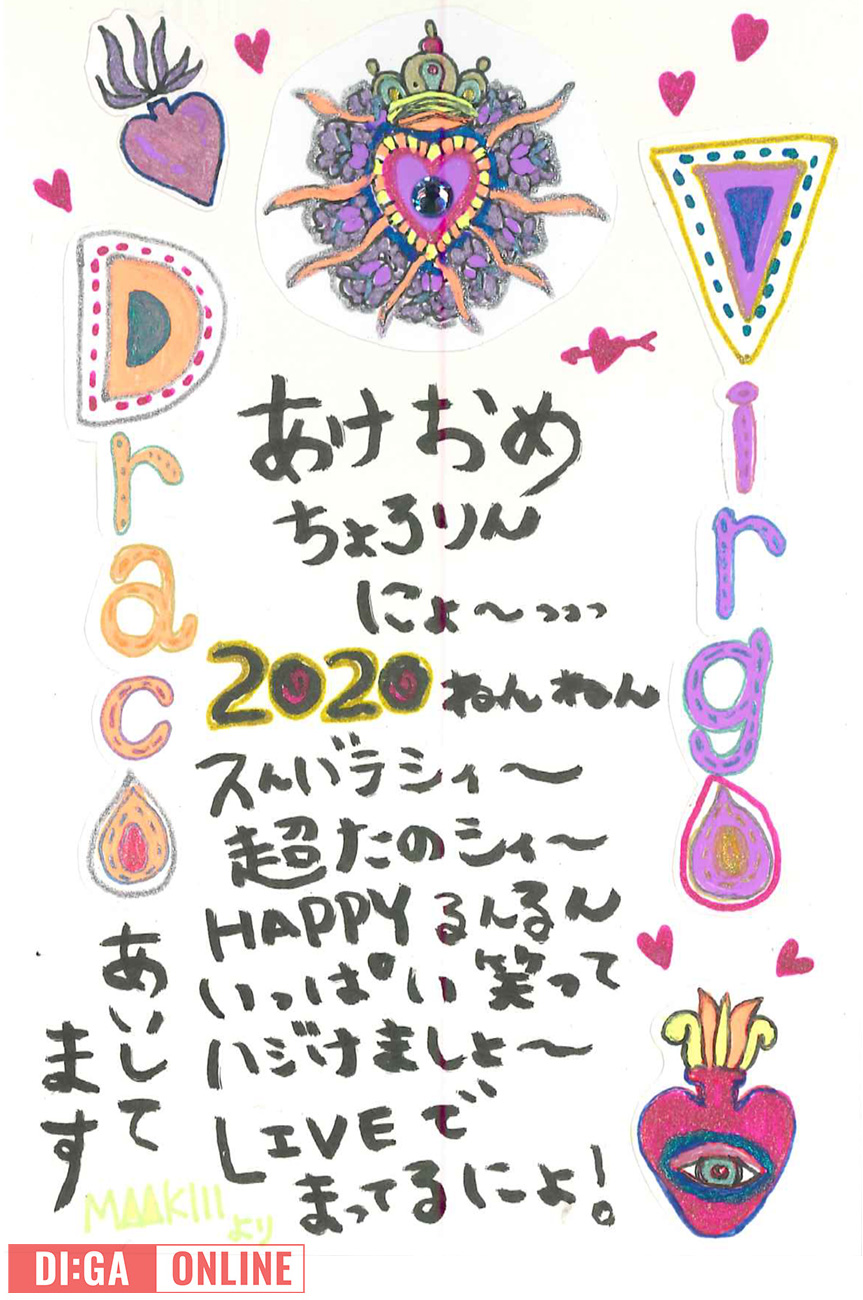 Draco
Virgo
あけおめ
ちょろりん
にょ〜…
2020 ねんねん
スんバラシィ〜
超たのシィ〜
HAPPY るんるん
いっぱい笑って
ハジけましょ〜
LIVEで
まってるにょ!
あいして
ます
MAAKIII
より
DI:GA ONLINE